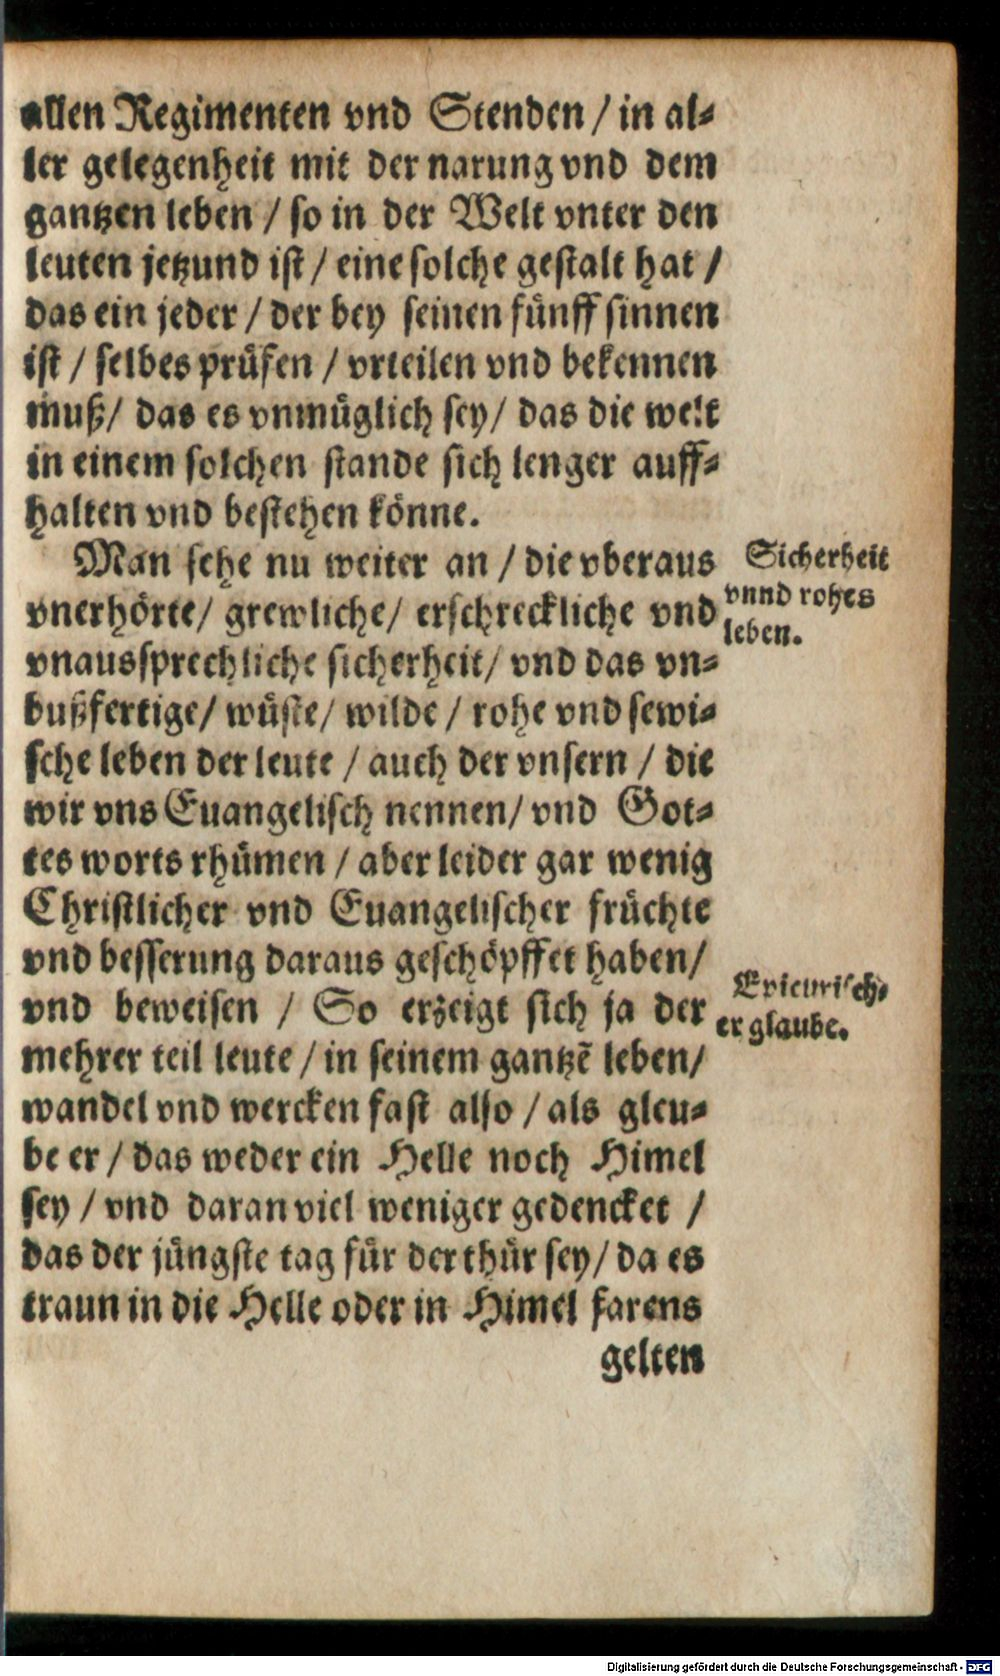 allen Regimenten vnd Stenden / in al⸗
ler gelegenheit mit der narung vnd dem
gantzen leben / so in der Welt vnter den
leuten jetzund ist / eine solche gestalt hat /
das ein jeder / der bey seinen fünff sinnen
ist / selbes prüfen / vrteilen vnd bekennen
muß / das es vnmüglich sey / das die welt
in einem solchen stande sich lenger auff⸗
halten vnd bestehen könne.
Man sehe nu weiter an / die vberaus
vnerhörte / grewliche / erschreckliche vnd
vnaussprechliche sicherheit / vnd das vn⸗
bußfertige / wüste / wilde / rohe vnd sewi⸗
sche leben der leute / auch der vnsern / die
wir vns Euangelisch nennen / vnd Got⸗
tes worts rhümen / aber leider gar wenig
Christlicher vnd Euangelischer früchte
vnd besserung daraus geschöpffet haben /
vnd beweisen / So erzeigt sich ja der
mehrer teil leute / in seinem gantzẽ leben /
wandel vnd wercken fast also / als gleu⸗
be er / das weder ein Helle noch Himel
sey / vnd daran viel weniger gedencket /
das der jüngste tag für der thür sey / da es
traun in die Helle oder in Himel farens
gelten
Sicherheit
vnnd rohes
leben.
Epicurisch⸗
er glaube.
Digitalisierung gefördert durch die Deutsche Forschungsgemeinschaft - DFG